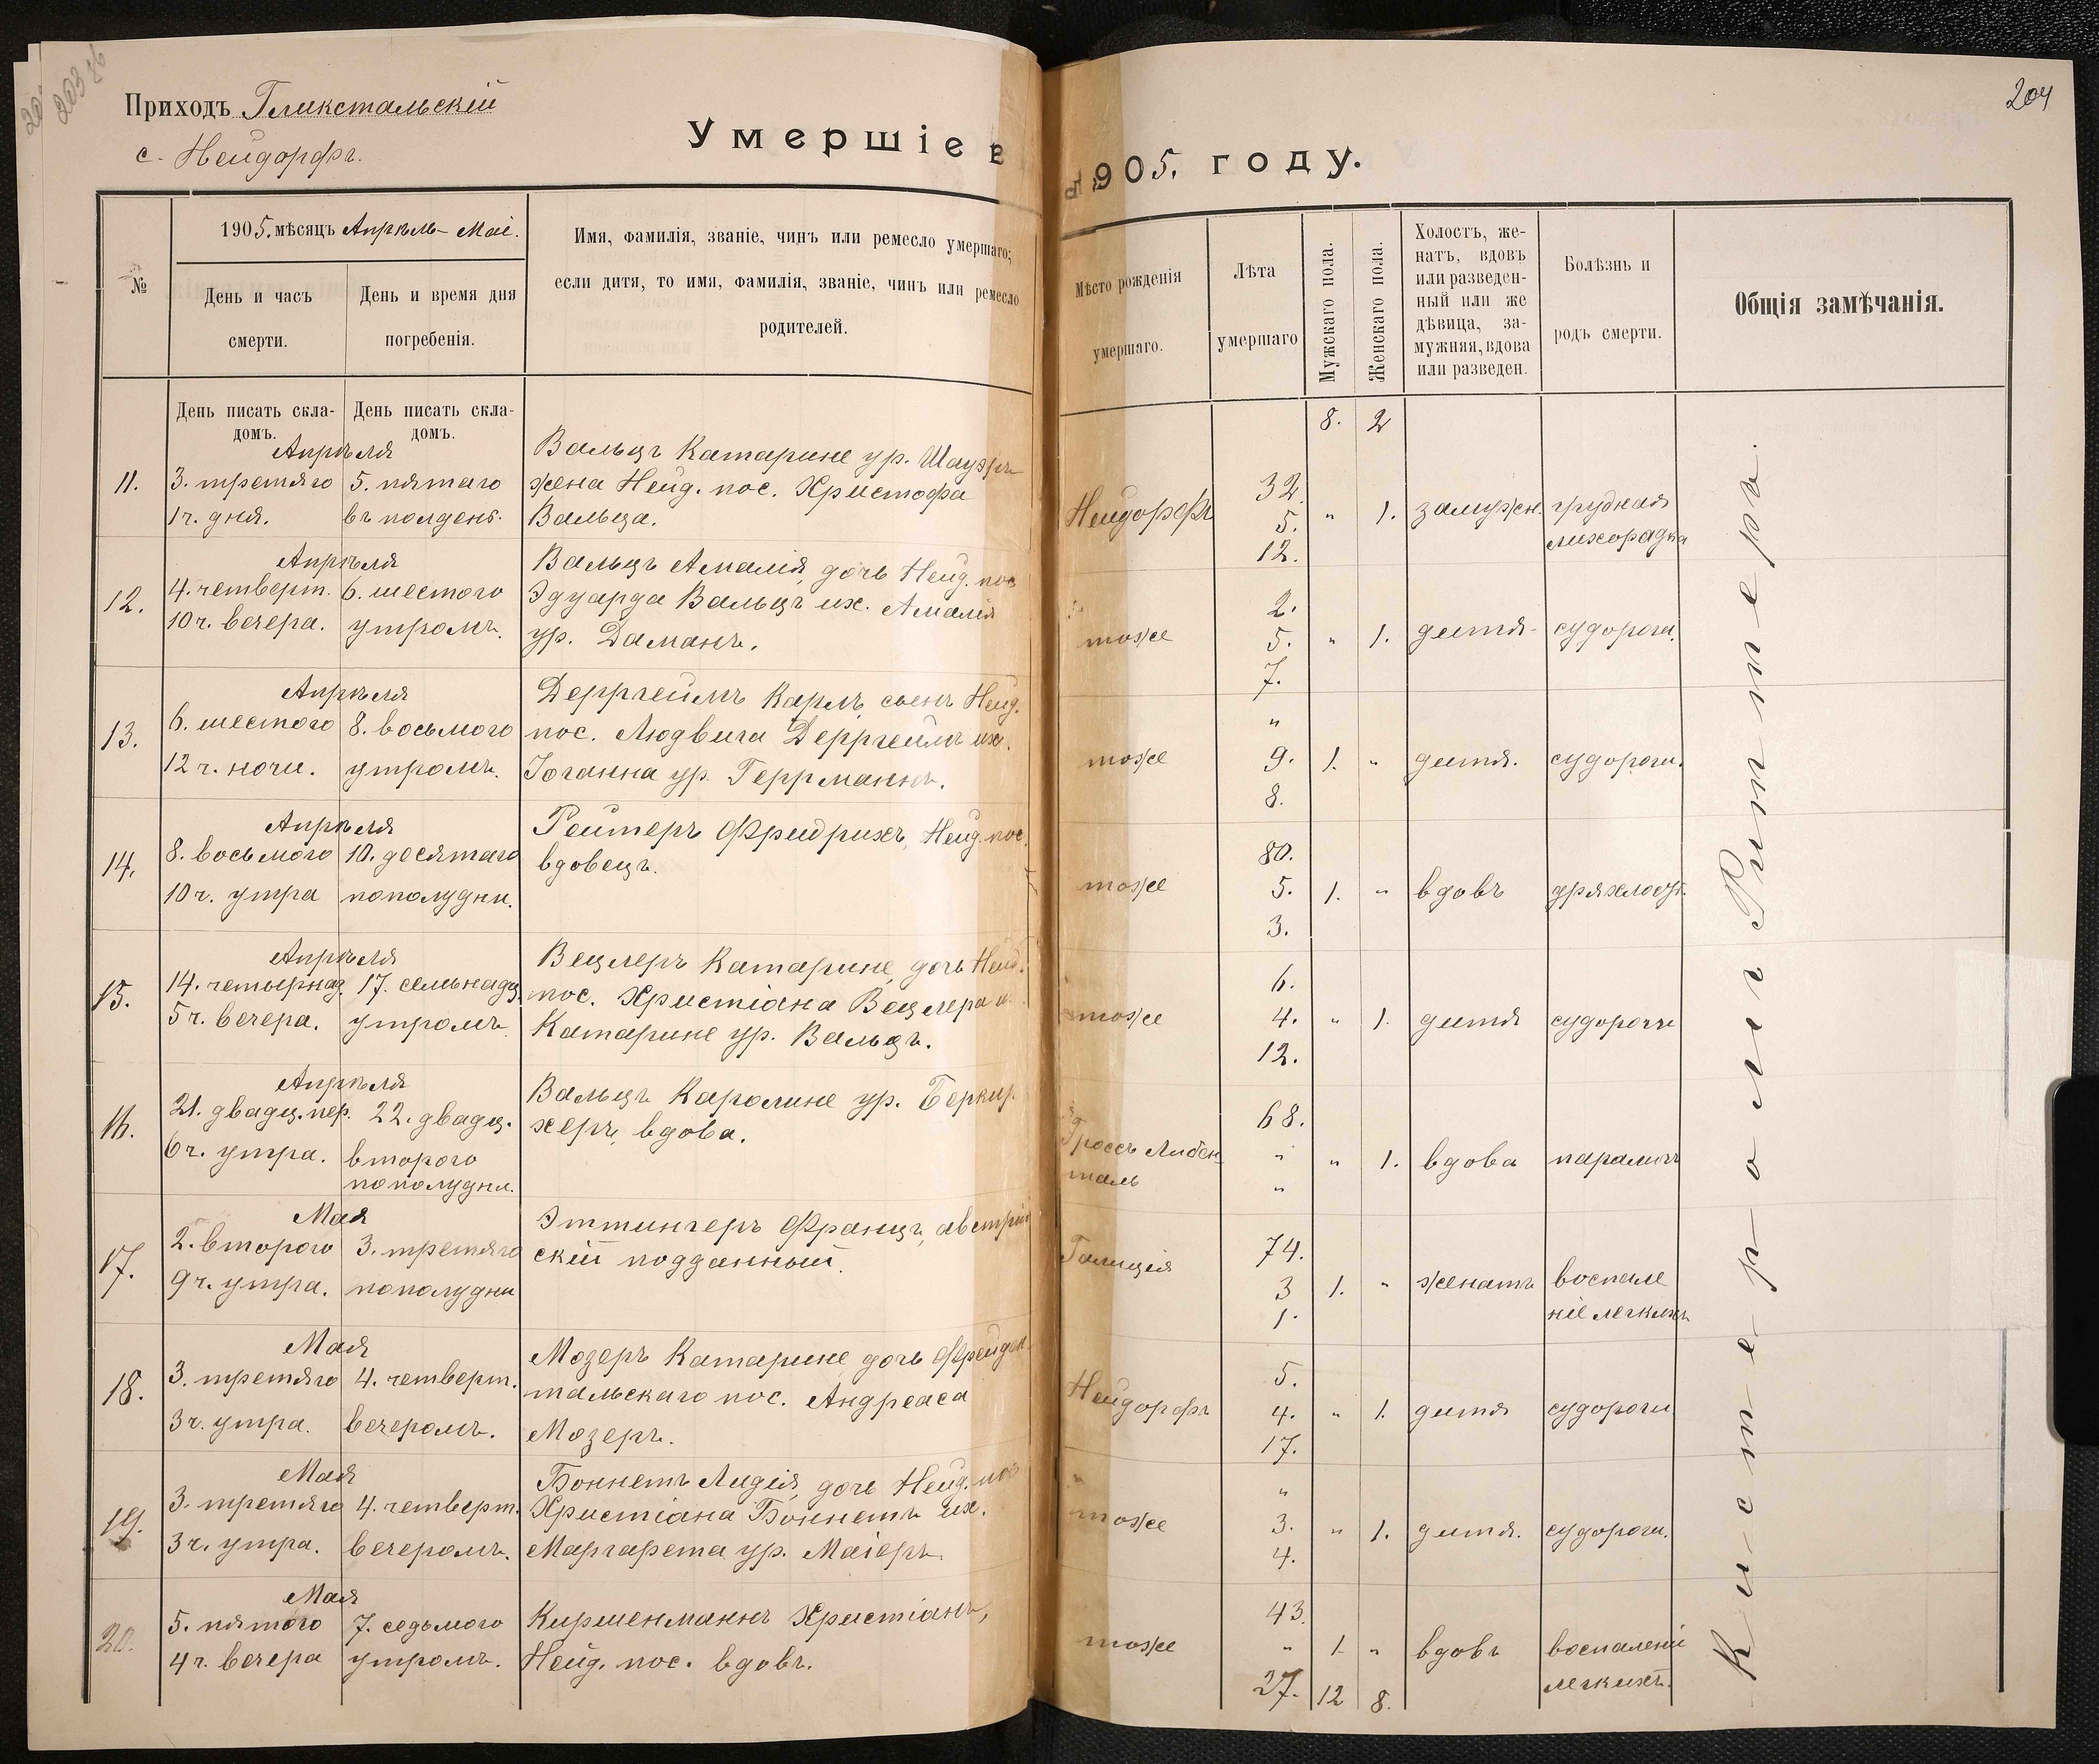 203 86
204
Приходъ Гликстальскій
с. Нейдорфъ.
Умершіе въ 1905. году.
№
1905. мѣсяцъ Апрѣль - Маі.
День и часъ смерти.
День и время дня погребенія.
Имя, фамилія, званіе, чинъ или ремесло умершаго;
если дитя, то имя, фамилія, званіе, чинъ или ремесло
родителей.
Мѣсто рожденія
умершаго.
Лѣта
умершаго
Мужскаго пола.
Женскаго пола.
Холостъ, же-
натъ, вдовъ
или разведен-
ный или же
дѣвица, за-
мужняя, вдова
или разведен.
Болѣзнь и
родъ смерти.
Общія замѣчанія.
День писать скла-
домъ.
День писать скла-
домъ.
8. 2
11.
Апрѣля
3. третяго
1 ч. дня.
5. пятаго
въ полдень.
Вальцъ Катарине ур. Шауэръ
жена Нейд. пос. Христофа
Вальца.
Нейдорфъ
32.
5.
12.
" 1.
замужн.
грудная
лихорадка
12.
Апрѣля
4. четверт.
10 ч. вечера.
6. шестого
утромъ.
Вальцъ Амалія, дочь Нейд. пос
Эдуарда Вальцъ иж. Амалія
ур. Даманъ.
тоже
2.
5.
7.
" 1.
дитя
судороги.
13.
Апрѣля
6. шестого
12 ч. ночи.
8. восьмого
утромъ.
Дерргеймъ Карлъ, сынъ Нейд.
пос. Людвига Дерргеймъ иж.
Іоганна ур. Геррманнъ.
тоже
"
9.
8.
1. "
дитя.
судороги.
14.
Апрѣля
8. восьмого
10 ч. утра
10. десятаго
пополудни.
Рейтеръ Фридрихъ, Нейд. пос.
вдовецъ.
тоже
80.
5.
3.
1. "
вдовъ
дряхлость.
15.
Апрѣля
14. четырнад.
5 ч. вечера.
17. семьнадц.
утромъ
Вецлеръ Катарине, дочь Нейд.
пос. Христіана Вецлера и
Катарине ур. Вальцъ.
тоже
6.
4.
12.
" 1.
дитя
судороги
16.
Апрѣля
21. двадц. пер.
6 ч. утра.
22. двадц.
второго
пополудни.
Вальцъ Каролине ур. Беркир-
херъ, вдова.
Гроссъ Либен-
таль
68.
"
"
" 1.
вдова
параличъ
17.
Мая
2. второго
9 ч. утра.
3. третяго
пополудни
Эттингеръ Францъ, австрій
скій подданный.
Галиція
74.
3
1.
1. "
женатъ
воспале
ніе легкихъ
18.
Мая
3. третяго
3 ч. утра.
4. четверт.
вечеромъ.
Мозеръ Катарине, дочь Фрейден-
тальскаго пос. Андреаса
Мозеръ.
Нейдорфъ
5.
4.
17.
" 1.
дитя
судороги
19.
Мая
3. третяго
3 ч. утра.
4. четверт.
вечеромъ.
Боннетъ Лидія, дочь Нейд. пос
Христіана Боннетъ иж.
Маргарета ур. Маіеръ
тоже
"
3.
4.
" 1.
дитя.
судороги.
20.
Мая
5. пятого
4 ч. вечера
7. седьмого
утромъ.
Киршенманнъ Христіанъ,
Нейд. пос. вдовъ.
тоже
43.
"
27.
1. "
вдовъ
воспаленіи
легкихъ.
12 8.
Кистеръ Ломъ Риттеръ.